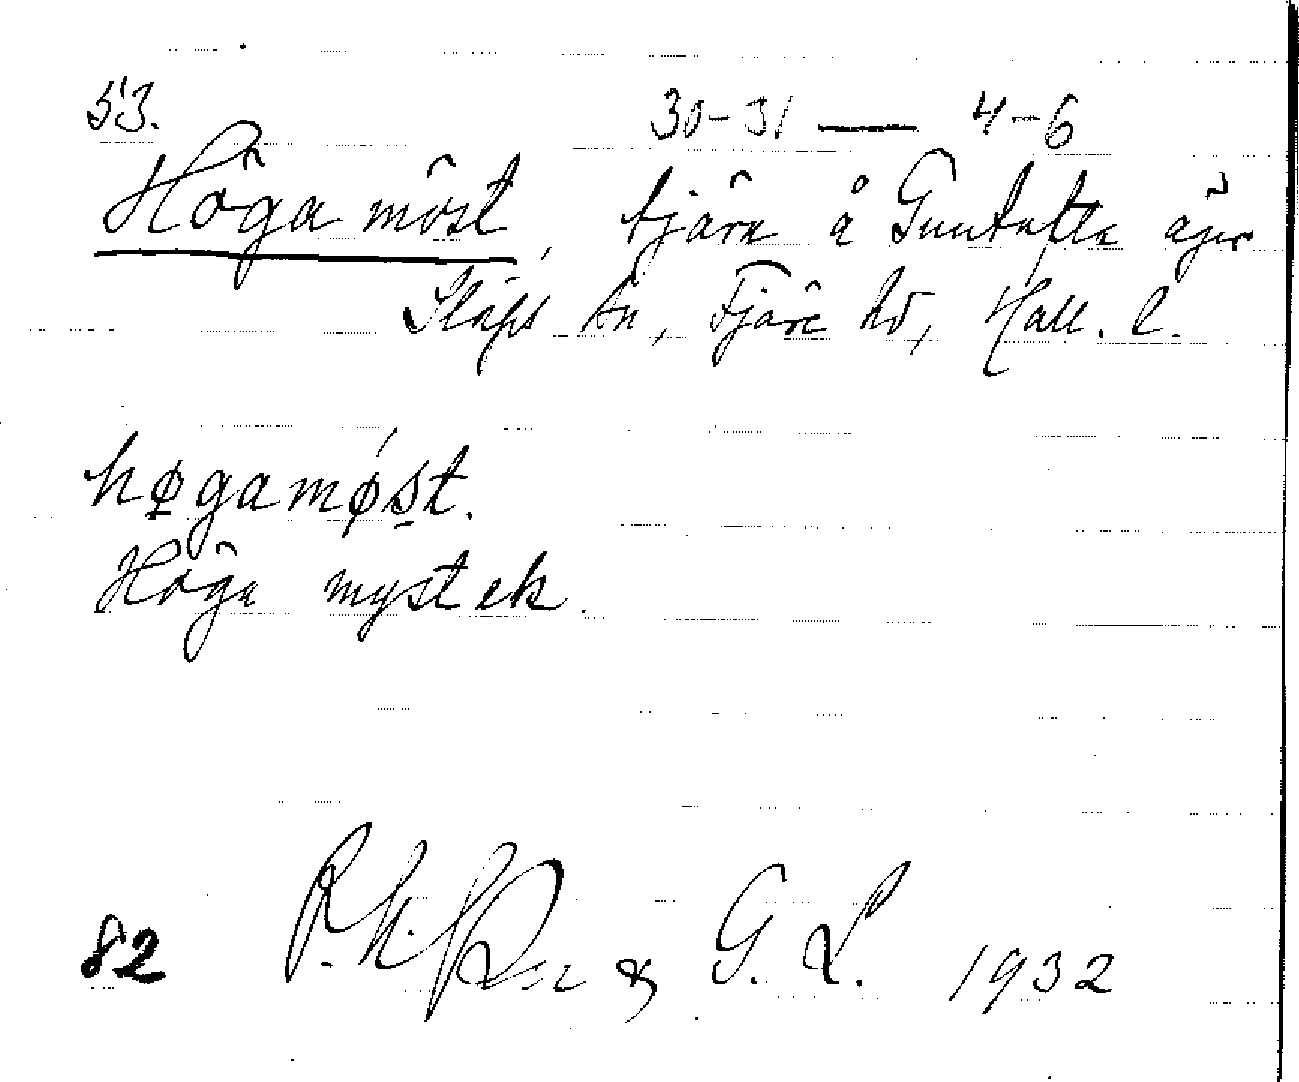 53. 30-31 — 4-6
Höga möst, tjärn å Guntofta ägor
Släps sn, Fjäre hd, Hall. l.
høgamøst.
Höga mystek.
82 & G. L. 1932